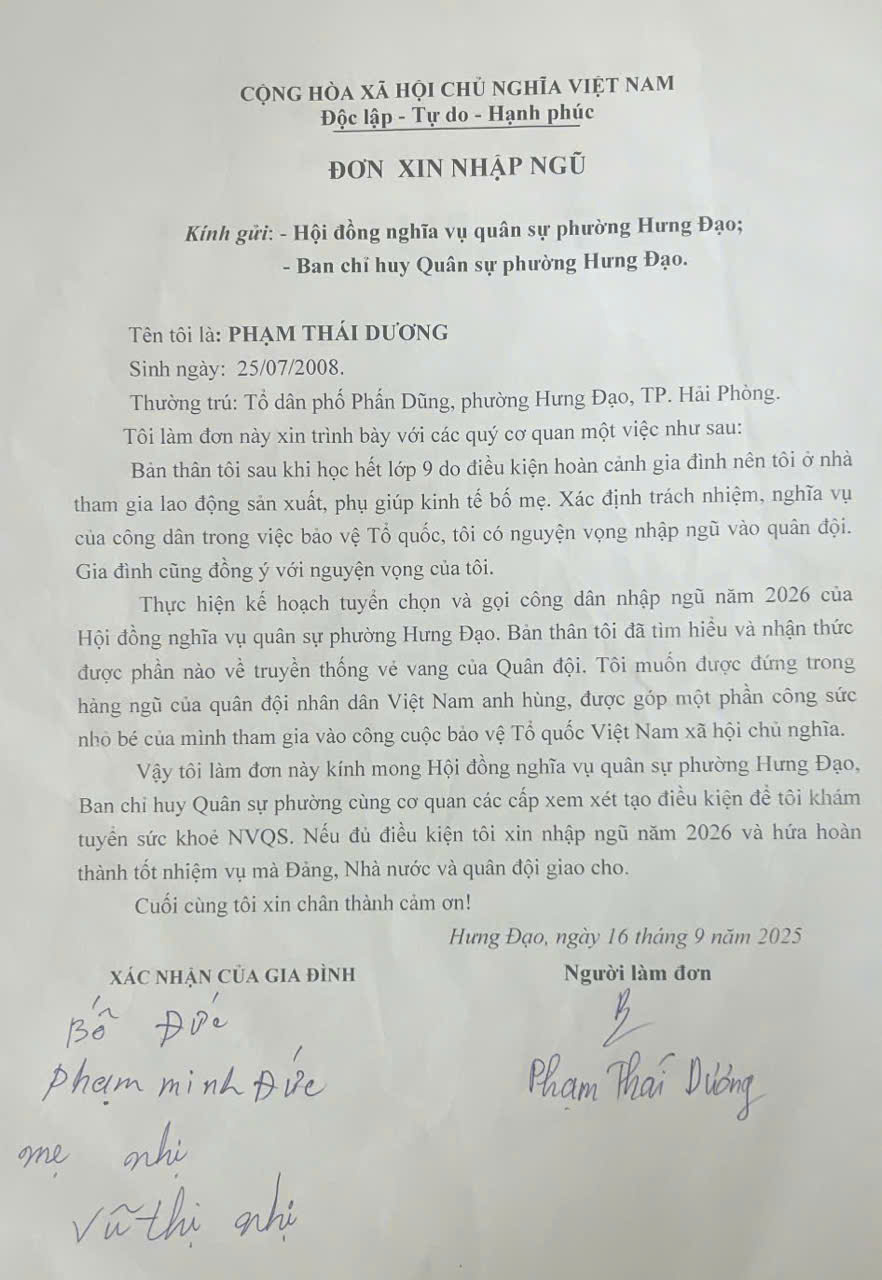 CỘNG HÒA XÃ HỘI CHỦ NGHĨA VIỆT NAM
Độc lập - Tự do - Hạnh phúc
ĐƠN XIN NHẬP NGŨ
Kính gửi: - Hội đồng nghĩa vụ quân sự phường Hưng Đạo;
- Ban chỉ huy Quân sự phường Hưng Đạo.
Tên tôi là: PHẠM THÁI DƯƠNG
Sinh ngày: 25/07/2008.
Thường trú: Tổ dân phố Phấn Dũng, phường Hưng Đạo, TP. Hải Phòng.
Tôi làm đơn này xin trình bày với các quý cơ quan một việc như sau:
Bản thân tôi sau khi học hết lớp 9 do điều kiện hoàn cảnh gia đình nên tôi ở nhà
tham gia lao động sản xuất, phụ giúp kinh tế bố mẹ. Xác định trách nhiệm, nghĩa vụ
của công dân trong việc bảo vệ Tổ quốc, tôi có nguyện vọng nhập ngũ vào quân đội.
Gia đình cũng đồng ý với nguyện vọng của tôi.
Thực hiện kế hoạch tuyển chọn và gọi công dân nhập ngũ năm 2026 của
Hội đồng nghĩa vụ quân sự phường Hưng Đạo. Bản thân tôi đã tìm hiểu và nhận thức
được phần nào về truyền thống vẻ vang của Quân đội. Tôi muốn được đứng trong
hàng ngũ của quân đội nhân dân Việt Nam anh hùng, được góp một phần công sức
nhỏ bé của mình tham gia vào công cuộc bảo vệ Tổ quốc Việt Nam xã hội chủ nghĩa.
Vậy tôi làm đơn này kính mong Hội đồng nghĩa vụ quân sự phường Hưng Đạo,
Ban chỉ huy Quân sự phường cùng cơ quan các cấp xem xét tạo điều kiện để tôi khám
tuyển sức khoẻ NVQS. Nếu đủ điều kiện tôi xin nhập ngũ năm 2026 và hứa hoàn
thành tốt nhiệm vụ mà Đảng, Nhà nước và quân đội giao cho.
Cuối cùng tôi xin chân thành cảm ơn!
Hưng Đạo, ngày 16 tháng 9 năm 2025
XÁC NHẬN CỦA GIA ĐÌNH Người làm đơn
Bố Đức
Phạm minh Đức Phạm Thái Dương
mẹ nhị
Vũ thị nhị